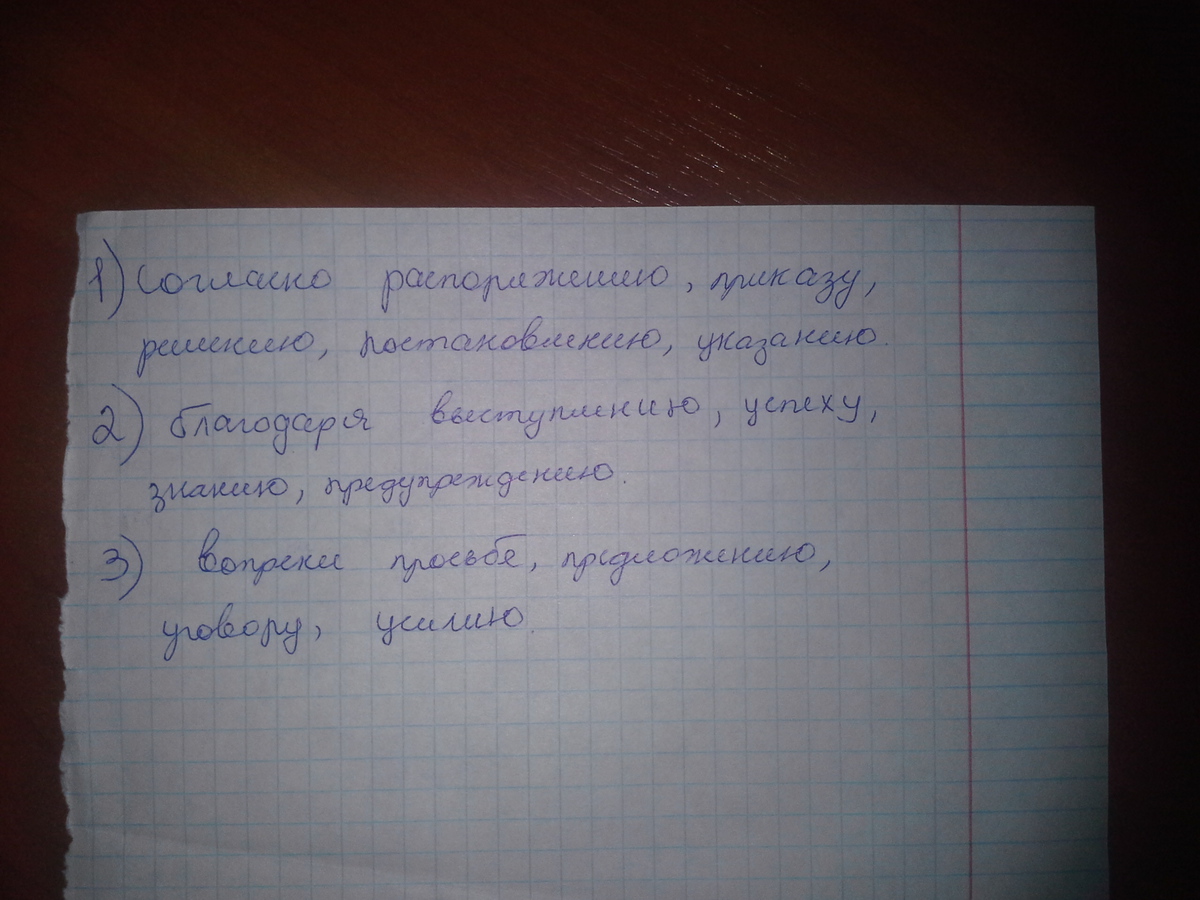 1) Согласно распоряжению, приказу,
решению, постановлению, указанию.
2) Благодаря выступлению, успеху,
знанию, предупреждению.
3) Вопреки просьбе, предложению,
уговору, усилию.